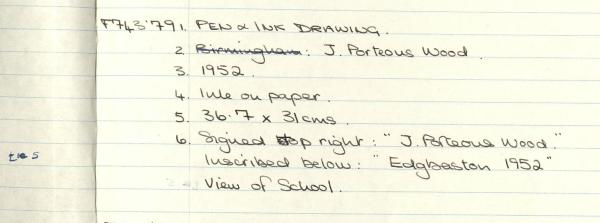 F743'79 1. PEN & INK DRAWING.
2. Birmingham: J. Porteous Wood.
3. 1952.
4. Ink on paper.
5. 36.7 x 31cms.
6. Signed top right: "J. Porteous Wood."
Inscribed below: "Edgbaston 1952"
View of School.